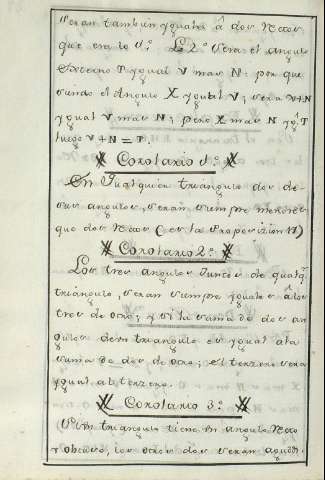 seran tambien yguales á dos Rectos
que era lo 1º. Lo 2º sera el angulo
Externo T ygual V mas N: por que
siendo el Angulo X ygual V, sera V+N
ygual V mas N; pero X mas N yg.l T
luego V+N=T.
Corolario 1º.
En qualquier triangulo dos de
sus angulos, seran siempre menores
que dos Rectos (es la Proposicion 17)
Corolario 2º.
Los tres angulos Juntos de qualq.r
triangulo, seran siempre yguales á los
tres de otro; y si la suma de dos an
gulos de un triangulo es ygual a la
suma de dos de otro; el terzero sera
ygual al terzero.
Corolario 3º.
Si un triangulo tiene un angulo Recto
ú obtuso, los otros dos seran agudos.